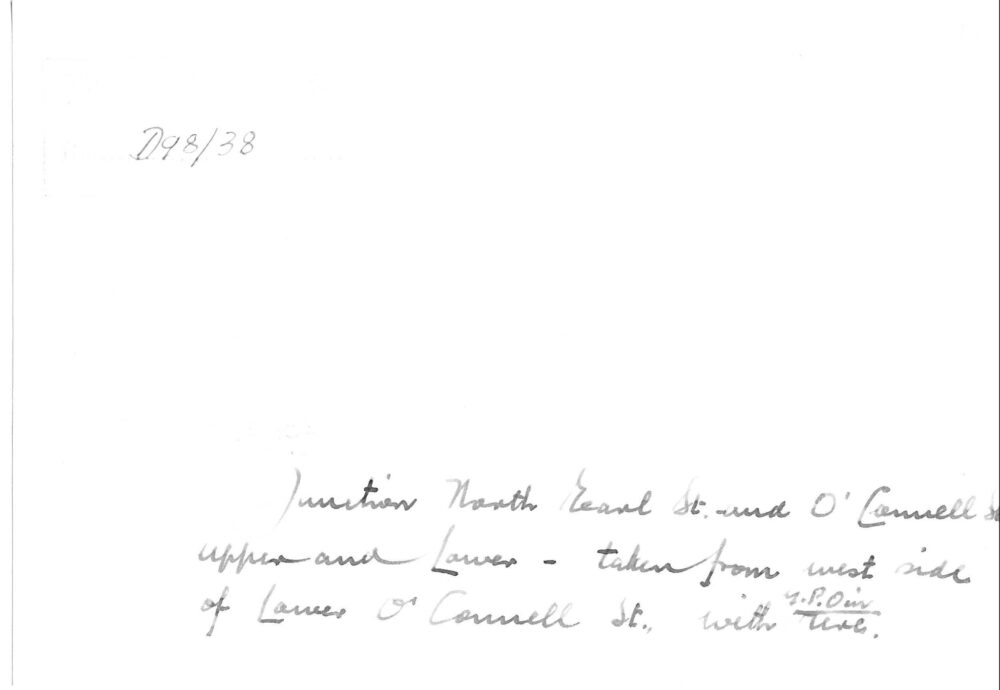 D98/38
Junction North Earl St. and O'Connell St
upper and Lower - taken from west side
of Lower O'Connell St., with